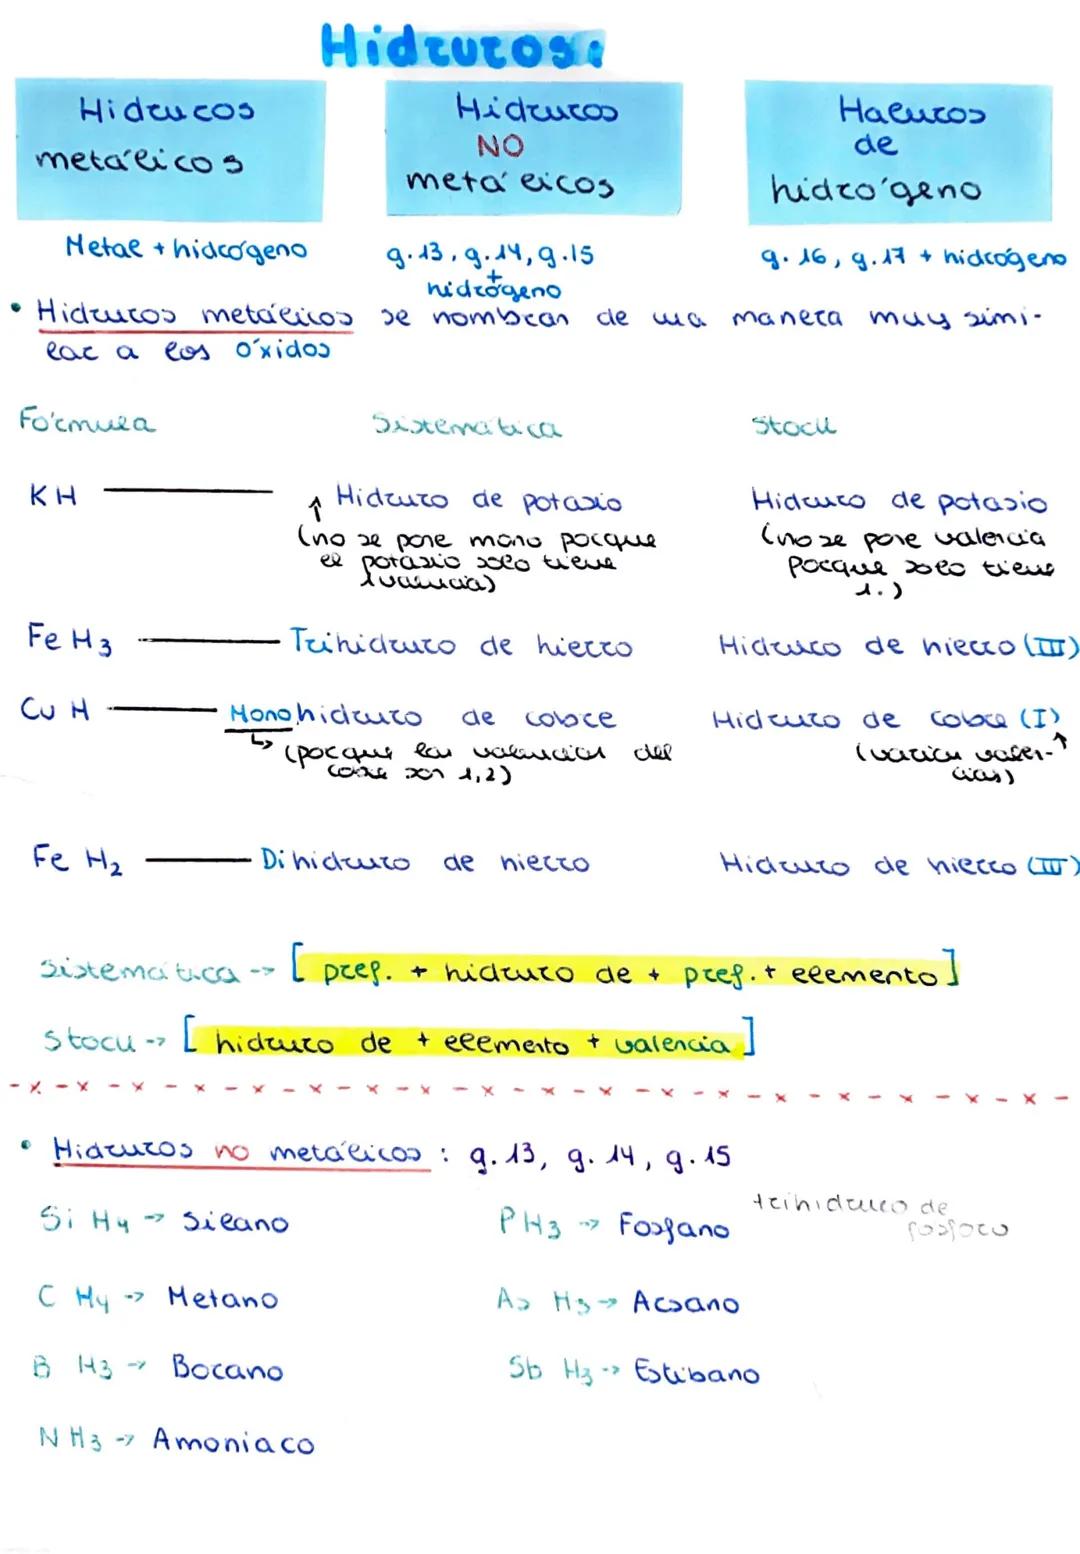 Hidruros:
Hidruros
metálicos
Hidruros
NO
metálicos
Haluros
de
hidrógeno
Metal + hidrógeno
g.13, g.14, g.15
+
hidrógeno
g. 16, g. 17 + hidrógeno
• Hidruros metálicos se nombran de una manera muy simi-
lar a los óxidos
Fórmula Sistemática Stock
KH — Hidruro de potasio Hidruro de potasio
↑ (no se pone mono porque
el potasio solo tiene
1 valencia)
(no se pone valencia
porque solo tiene
1.)
FeH3 — Trihidruro de hierro Hidruro de hierro (III)
CuH — Monohidruro de cobre Hidruro de cobre (I)
↳ (porque las valencias del
cobre son 1,2)
(varias valen-
cias) ↑
FeH2 — Dihidruro de hierro Hidruro de hierro (III)
Sistemática -> [pref. + hidruro de + pref. + elemento]
Stock -> [hidruro de + elemento + valencia]
• Hidruros no metálicos : g.13, g.14, g.15
SiH4 -> Silano
PH3 -> Fosfano trihidruro de
fosforo
CH4 -> Metano
AsH3 -> Arsano
BH3 -> Borano
SbH3 -> Estibano
NH3 -> Amoniaco